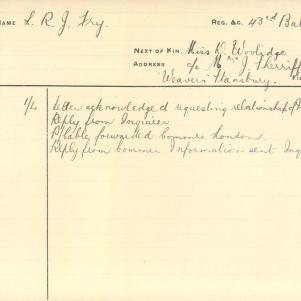 NAME L. R. J. Fry. REG. &c. 43rd Bat
NEXT OF KIN Miss D. Woolidge
ADDRESS c/o Mrs J. Sherriff
Weavers Hanstury.
1/4 Letter acknowledged requesting relationship of
Reply from Inquirer
forwarded Commrs London
Reply from Commr Information sent Inq